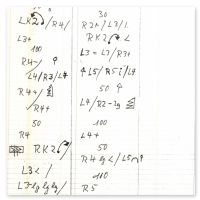 LK2 / R4 /
L3+
100
R4- /
L4/R3/L4
R4+ /
/R4+
50
R4
RK2 /
L3< /
L3-lg lg lg /
30
R2+/L3/L
RK2 <
L3=L3/R3+
L5/R5 i/L4
50
L4/R2-lg
100
L4+
50
R4 lg</L5
100
R5